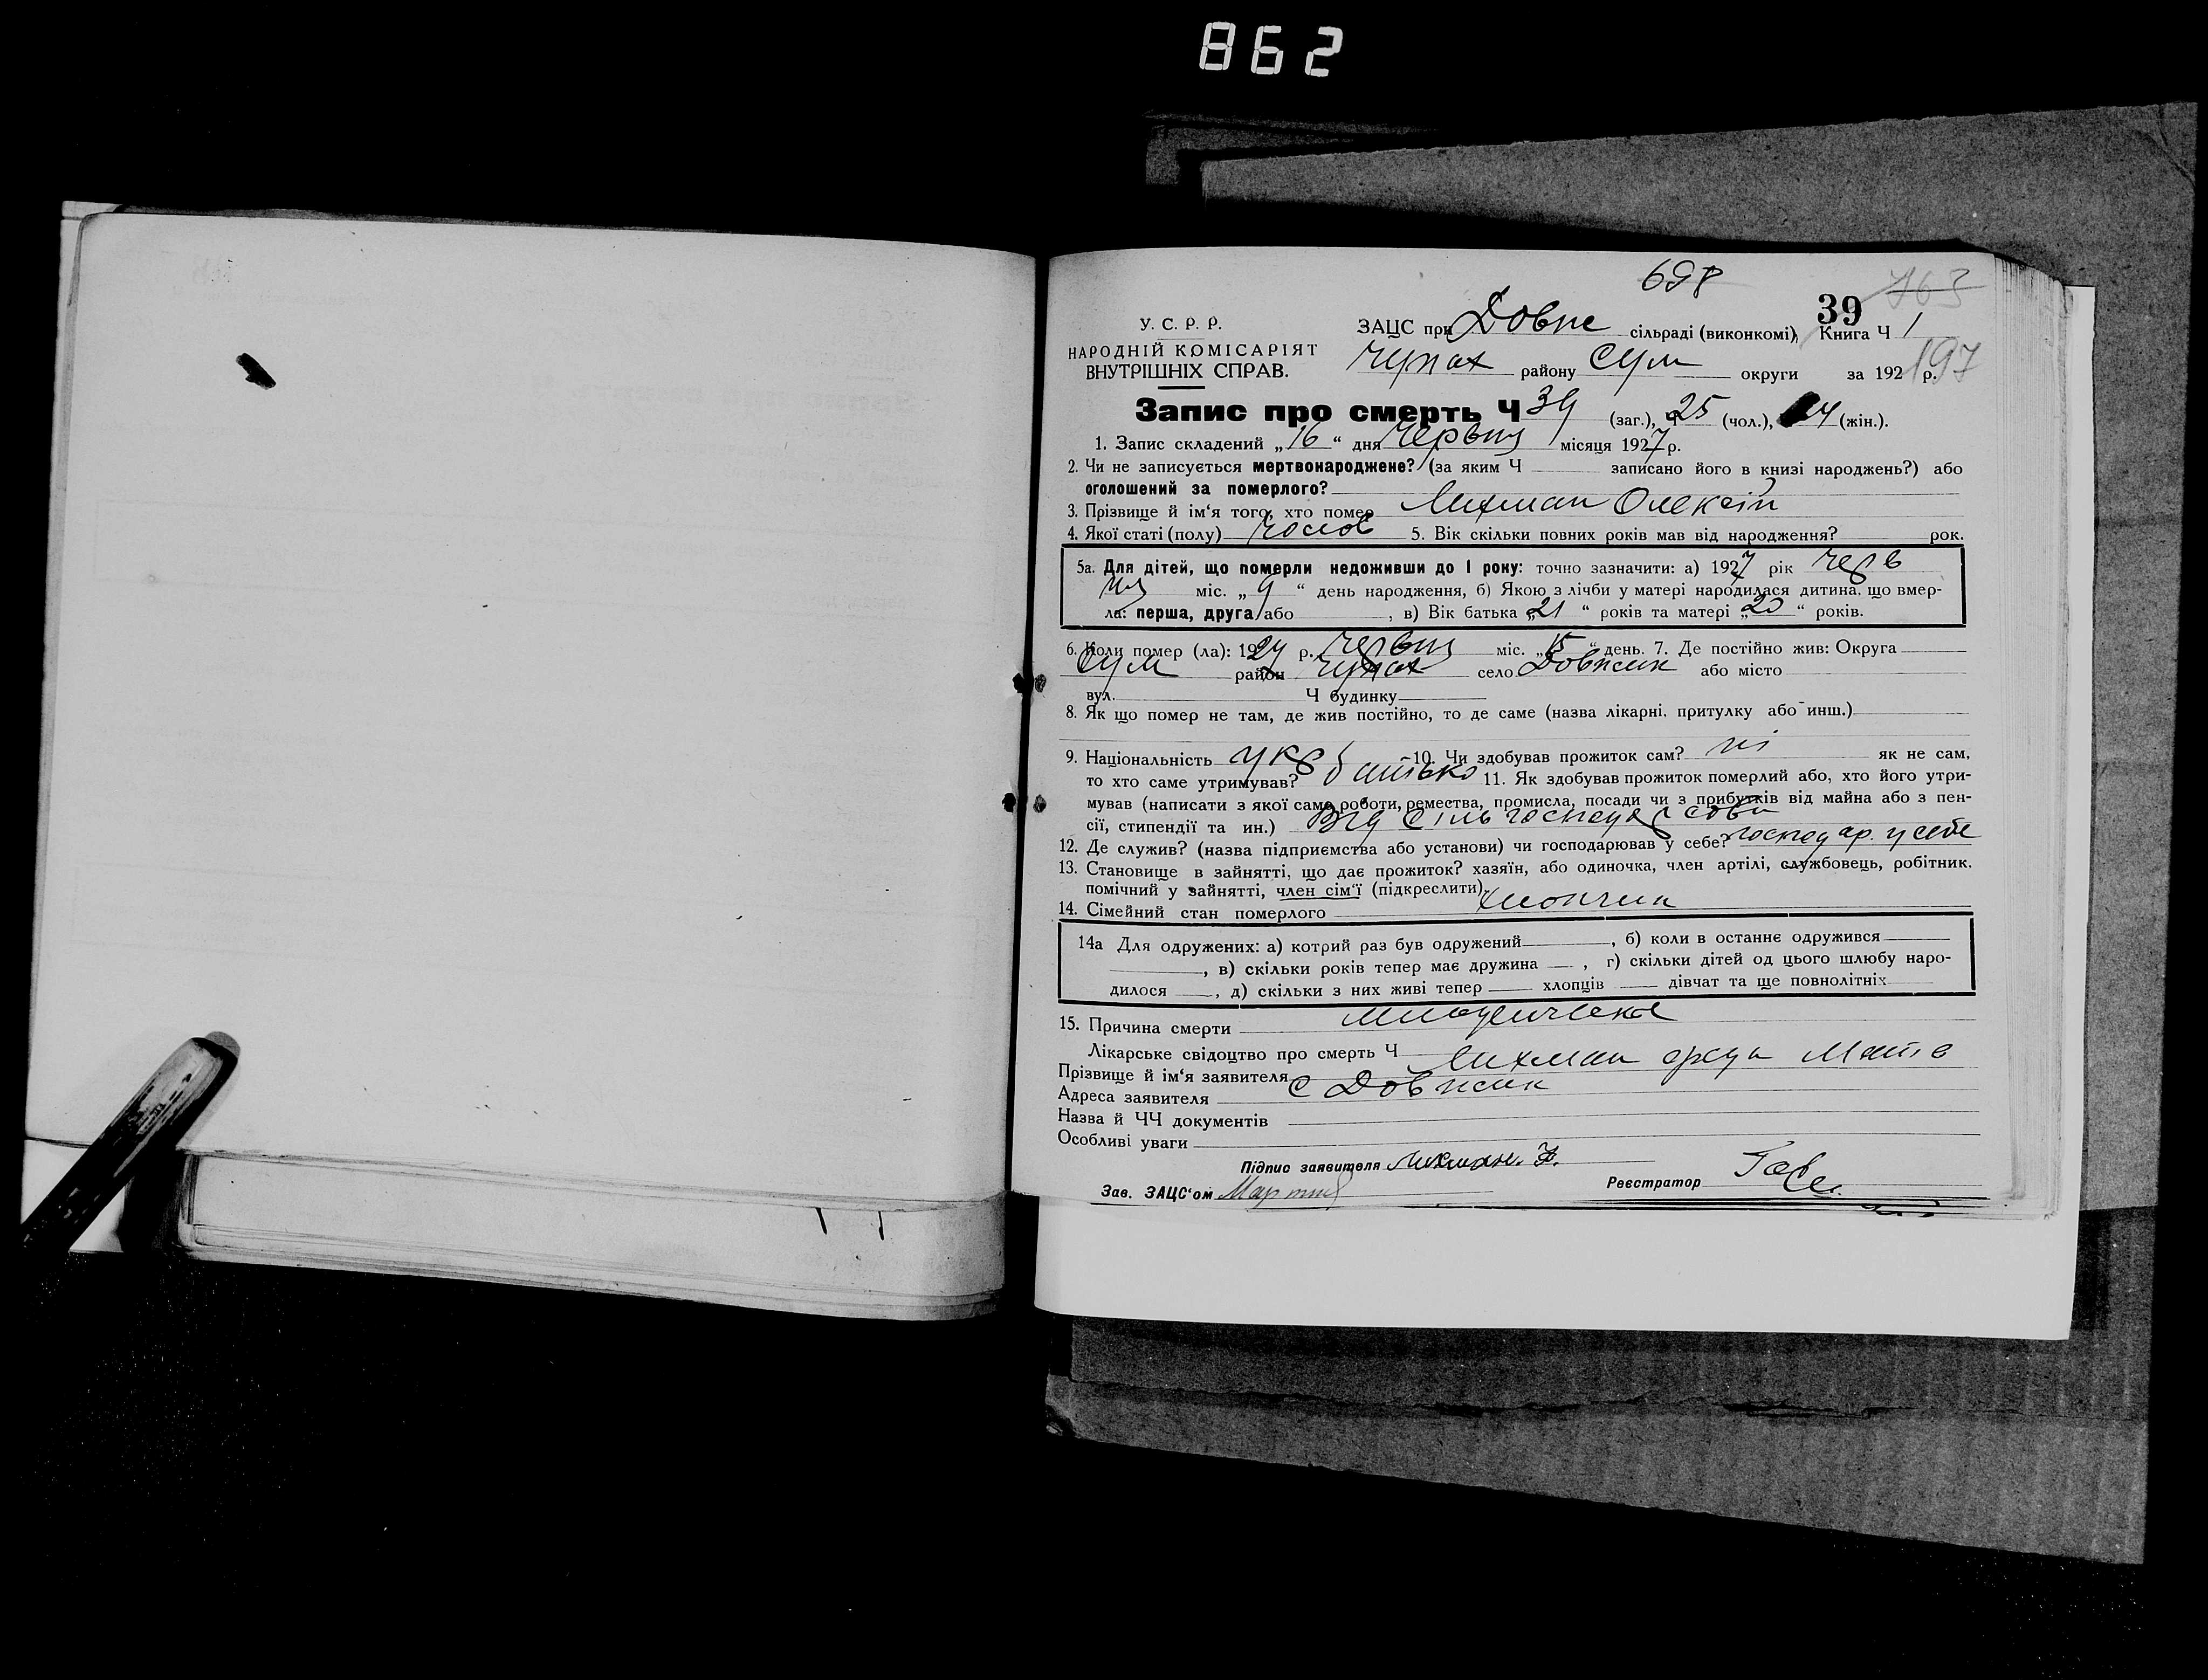 862
698
39 763
У. С. Р. Р. ЗАЦС при Довж сільраді (виконкомі), Книга Ч 1
НАРОДНІЙ КОМІСАРІЯТ Чупах району Сум округи за 192 р. 197
ВНУТРІШНІХ СПРАВ.
Запис про смерть Ч 39 (заг.), Ч 25 (чол.), 14 (жін.).
1. Запис складений „16“ дня Червня місяця 1927 р.
2. Чи не записується мертвонароджене? (за яким Ч записано його в книзі народжень?) або
оголошений за померлого?
3. Прізвище й ім'я того, хто помер Лихман Олексій
4. Якої статі (полу) Чолов 5. Вік скільки повних років мав від народження? рок.
5а. Для дітей, що померли недоживши до 1 року: точно зазначити: а) 1927 рік черв
ня міс. „9“ день народження, б) Якою з лічби у матері народилася дитина, що вмер-
ла: перша, друга/або , в) Вік батька „21“ років та матері „20“ років.
6. Коли помер (ла): 1927 р. Червня міс. „15“ день. 7. Де постійно жив: Округа
Сум район Чупах село Довжик або місто
вул. Ч будинку
8. Як що помер не там, де жив постійно, то де саме (назва лікарні, притулку або инш.)
9. Національність укр 10. Чи здобував прожиток сам? ні як не сам,
то хто саме утримував? батько 11. Як здобував прожиток померлий або, хто його утри-
мував (написати з якої само роботи, ремества, промисла, посади чи з прибутків від майна або з пен-
сії, стипендії та ин.) Від сіль господарсова
12. Де служив? (назва підприємства або установи) чи господарював у себе? господар. у себе
13. Становище в зайнятті, що дає прожиток? хазяїн, або одиночка, член артілі, службовець, робітник.
помічний у зайнятті, член сім'ї (підкреслити)
14. Сімейний стан померлого хлопчик
14а Для одружених: а) котрий раз був одружений , б) коли в останнє одружився
, в) скільки років тепер має дружина , г) скільки дітей од цього шлюбу наро-
дилося , д) скільки з них живі тепер хлопців дівчат та ще повнолітніх
15. Причина смерти
Лікарське свідоцтво про смерть Ч
Прізвище й ім'я заявителя Лихман
Адреса заявителя с Довжик
Назва й ЧЧ документів
Особливі уваги
Підпис заявителя Лихман.
Зав. ЗАЦС'ом Реєстратор